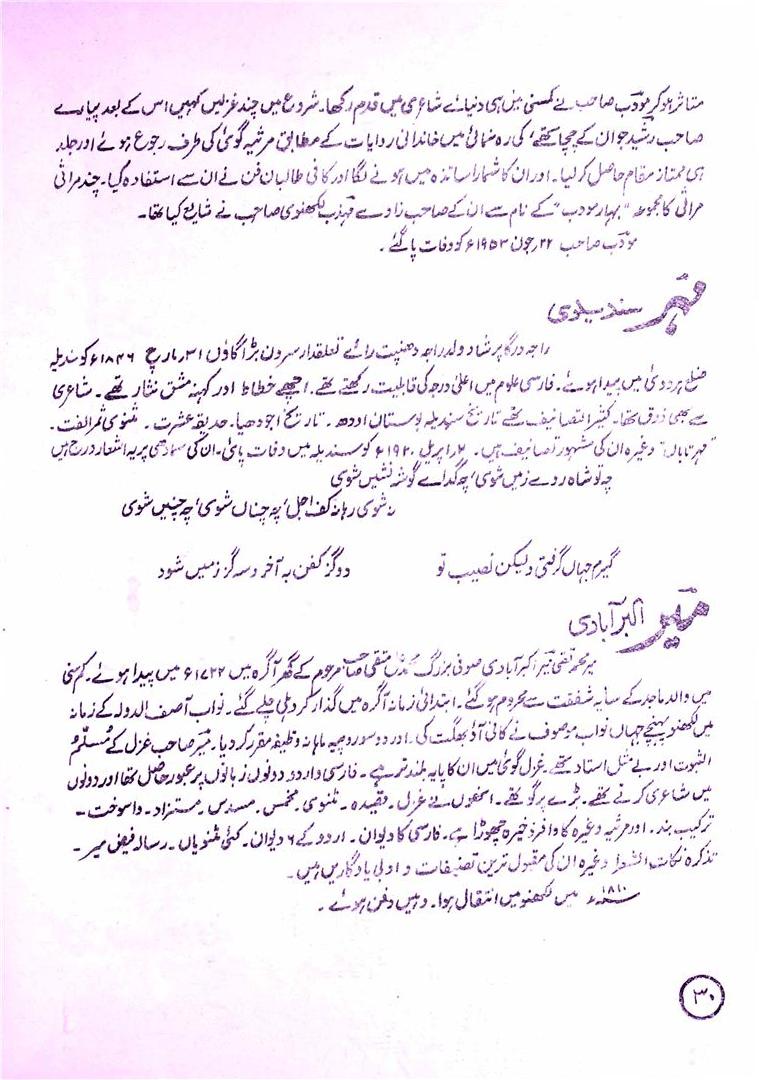 متاثر ہو کر مودّب صاحب نے کمسنی میں ہی دنیائے شاعری میں قدم رکھا۔ شروع میں چند غزلیں کہیں اس کے بعد پیارے
صاحب رشید جو ان کے چچا تھے، کی رہ نمائی میں خاندانی روایات کے مطابق مرثیہ گوئی کی طرف رجوع ہوئے اور جلد
ہی ممتاز مقام حاصل کر لیا۔ اور ان کا شمار اساتذہ میں ہونے لگا اور کافی طالبان فن نے ان سے استفادہ کیا۔ چند مراثی
مراثی کا مجموعہ "بہار مودب" کے نام سے ان کے صاحب زادے مہذب لکھنوی صاحب نے شایع کیا تھا۔
مودّب صاحب ۲۲ جون ۱۹۵۳ء کو وفات پا گئے۔
مہر سندیلوی
راجہ درگا پرشاد ولد راجہ دھنپت رائے تعلقدار سرون بڑا گاوٗں ۳۱ مارچ ۱۸۴۶ء کو سندیلہ
ضلع ہردوئی میں پیدا ہوئے۔ فارسی علوم میں اعلیٰ درجہ کی قابلیت رکھتے تھے۔ اچھے خطاط اور کہنہ مشق نثار تھے۔ شاعری
سے بھی ذوق تھا۔ کثیر التصانیف تھے تاریخ سندیلہ بوستان اودھ۔ تاریخ اجودھیا۔ حدیقہ عشرت۔ مثنوی ثمر الفت۔
"مہر تاباں" وغیرہ ان کی مشہور تصانیف ہیں۔ ۲ اپریل ۱۹۲۰ء کو سندیلہ میں وفات پائی۔ ان کی سمادھی پر یہ اشعار درج ہیں
چہ تو شاہ روئے زمیں شوی، چہ گدائے گوشہ نشیں شوی
نہ شوی رہا نہ کف اجل، چہ چناں شوی، چہ چنیں شوی
گیرم جہاں گرفتی ولیکن نصیب تو دو گز کفن بہ آخر و سہ گز زمیں شود
میر اکبر آبادی
میر محمد تقی میر اکبر آبادی صوفی بزرگ محمد متقی صاحب مرحوم کے گھر آگرہ میں ۱۷۲۲ء میں پیدا ہوئے۔ کم سنی
میں والد ماجد کے سایہ شفقت سے محروم ہو گئے۔ ابتدائی زمانہ آگرہ میں گذار کر دہلی چلے گئے۔ نواب آصف الدولہ کے زمانہ
میں لکھنو پہنچے جہاں نواب موصوف نے کافی آوٗ بھگت کی۔ اور دو سو روپیہ ماہانہ وظیفہ مقرر کر دیا۔ میر صاحب غزل کے مُسلّمُ
الثبوت اور بے مثل استاد تھے۔ غزل گوئی میں ان کا پایہ بلند تر ہے۔ فارسی و اردو دونوں زبانوں پر عبور حاصل تھا اور دونوں
میں شاعری کرتے تھے۔ بڑے پر گو تھے۔ انھوں نے غزل۔ قصیدہ۔ مثنوی۔ مخمس۔ مسدس۔ مستزاد۔ واسوخت۔
ترکیب بند۔ اور مرثیہ وغیرہ کا وافر ذخیرہ چھوڑا ہے۔ فارسی کا دیوان۔ اردو کے ۶ دیوان۔ کئی مثنویاں۔ رسالہ فیض میر۔
تذکرہ نکات الشعرا وغیرہ ان کی مقبول ترین تصنیفات و ادبی یادگاریں ہیں۔
۱۸۱۰ء میں لکھنو میں انتقال ہوا۔ وہیں دفن ہوئے۔
۳۰